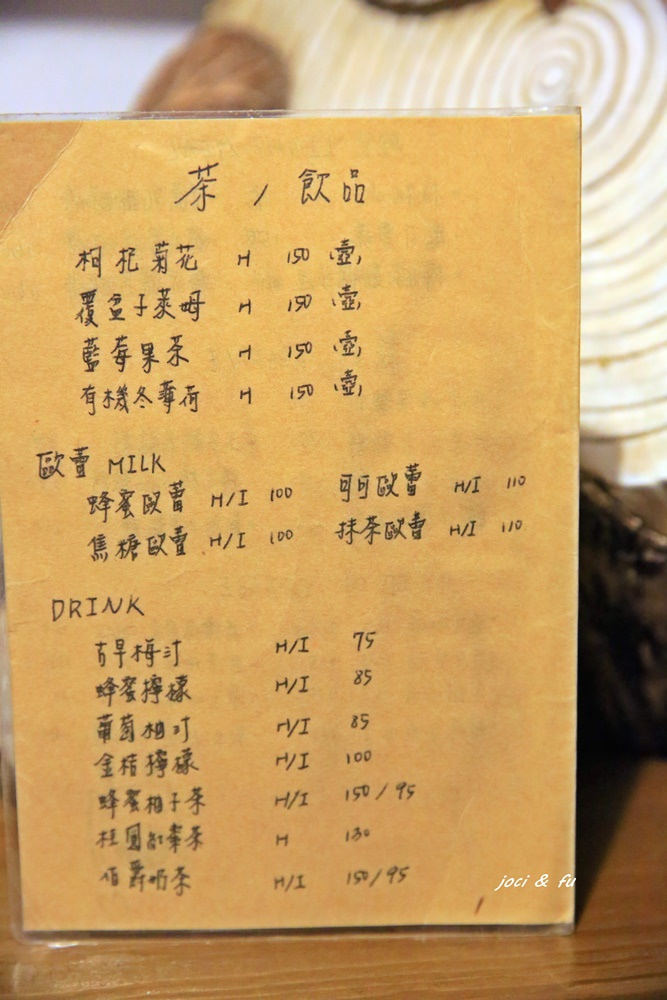 茶 / 飲品
枸杞菊花 H 150 (壺)
覆盆子萊姆 H 150 (壺)
藍莓果茶 H 150 (壺)
有機冬薄荷 H 150 (壺)
歐蕾 MILK
蜂蜜歐蕾 H/I 100 可可歐蕾 H/I 110
焦糖歐蕾 H/I 100 抹茶歐蕾 H/I 110
DRINK
古早梅汁 H/I 75
蜂蜜檸檬 H/I 85
葡萄柚汁 H/I 85
金桔檸檬 H/I 100
蜂蜜柚子茶 H/I 150/95
桂圓紅棗茶 H 130
伯爵奶茶 H/I 150/95
joci & fu